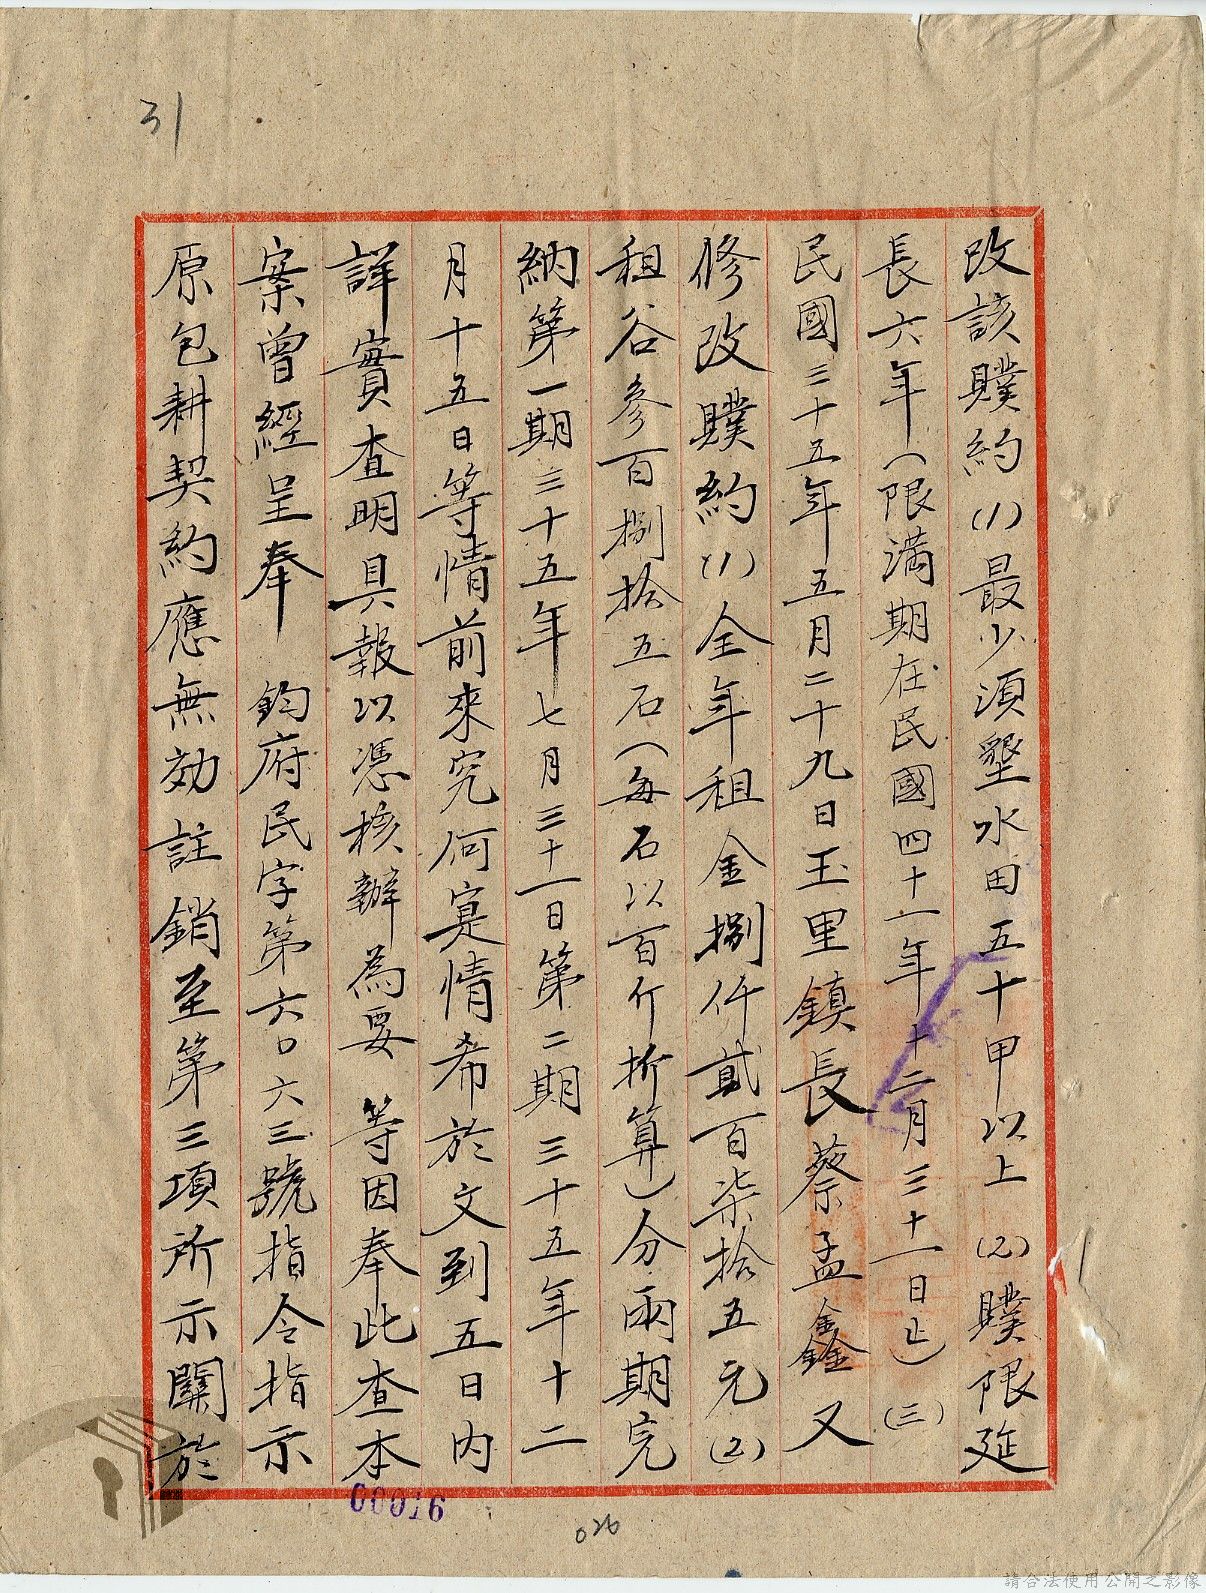 31
改該贌約(1)最少須墾水田五十甲以上(2)贌限延
長六年(限滿期在民國四十一年十二月三十一日止)(三)
民國三十五年五月二十九日玉里鎮長蔡孟鑫又
修改贌約(1)全年租金捌仟貳百柒拾五元(2)
租谷參百捌拾五石(每石以百斤折算)分兩期完
納第一期三十五年七月三十一日第二期三十五年十二
月十五日等情前來究何寔情希於文到五日內
詳實查明具報以憑核辦為要 等因奉此查本
案曾經呈奉 鈞府民字第六〇六三號指令指示
原包耕契約應無効註銷至第三項所示關於
00016
026
請合法使用公開之影像